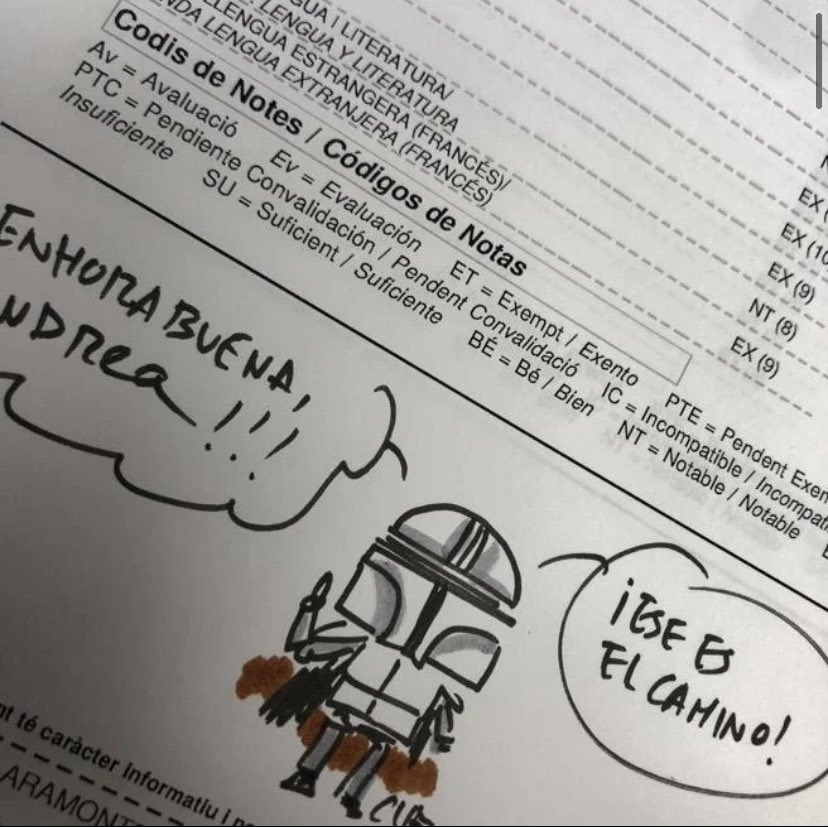 GUA I LITERATURA/
LENGUA Y LITERATURA
LLENGUA ESTRANGERA (FRANCÉS)/
NDA LENGUA EXTRANJERA (FRANCÉS)
EX (10
EX (9)
NT (8)
EX (9)
Codis de Notes / Códigos de Notas
Av = Avaluació Ev = Evaluación ET = Exempt / Exento PTE = Pendent Exen
PTC = Pendiente Convalidación / Pendent Convalidació IC = Incompatible / Incompati
Insuficiente SU = Suficient / Suficiente BÉ = Bé / Bien NT = Notable / Notable
ENHORABUENA,
NDREA!!!
¡ESE ES
EL CAMINO!
nt té caràcter informatiu i
ARAMONT